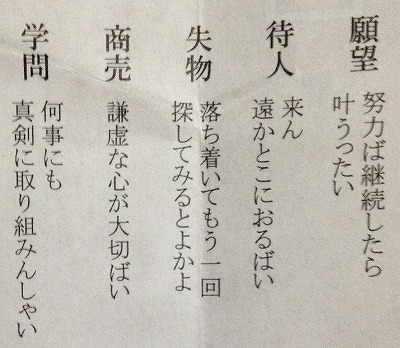 願望
努力ば継続したら
叶うったい
待人
来ん
遠かとこにおるばい
失物
落ち着いてもう一回
探してみるとよかよ
商売
謙虚な心が大切ばい
学問
何事にも
真剣に取り組みんしゃい